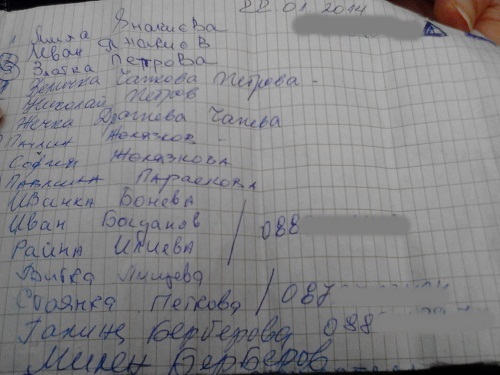 22.01.2014
Янакиева
Иван Янакиев
Златка Петрова
Чанкова Петрова -
Николай Петров
Женка Драгнева Чанева
Павлин Желязков -
София Желязкова
Павлинка Параскова
Иванка Бонева
Иван Богданов / 088
Райна Илиева
Витка
Стоянка Петкова / 087
Галина Берберова 088
Милен Берберов